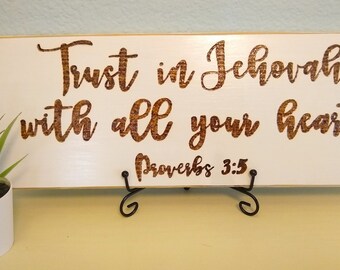 Trust in Jehovah
with all your heart
Proverbs 3:5